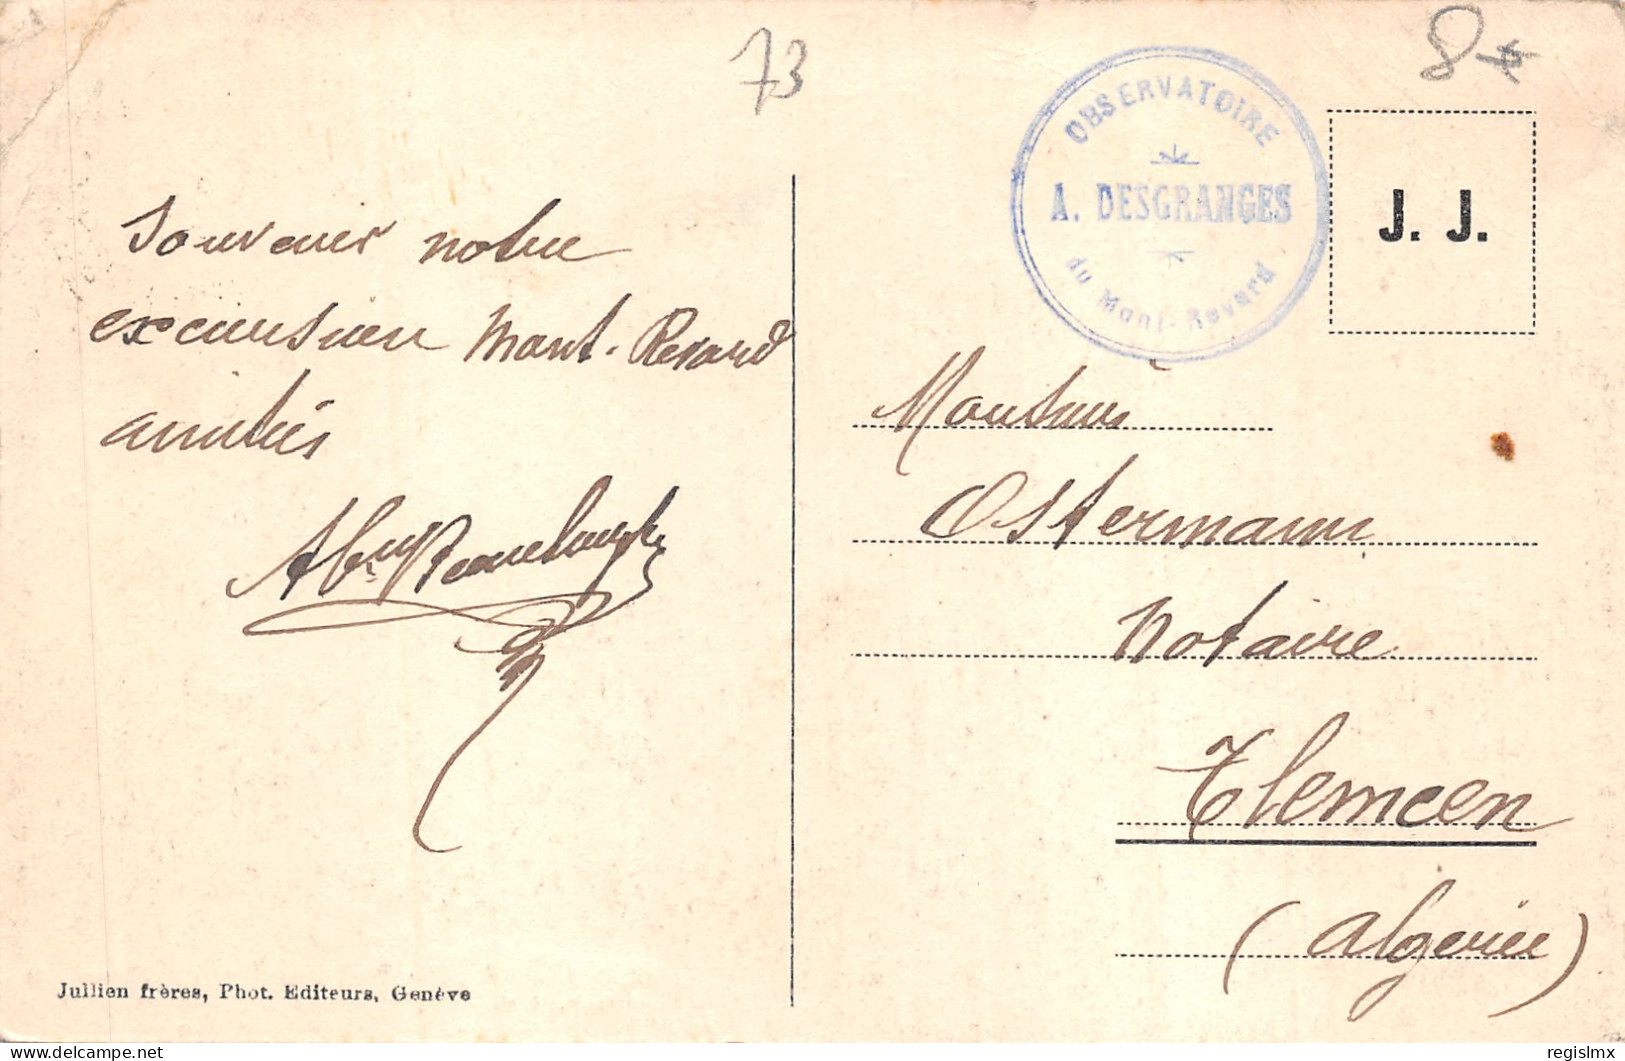 73
8
OBSERVATOIRE
A. DESGRANGES
du Mont-Revard
J. J.
Souvenir notre
excursion Mont-Revard
amitiés
Monsieur
Ostermann
Notaire
Tlemcen
(Algérie)
Jullien frères, Phot. Editeurs, Genève
delcampe.net
regislmx